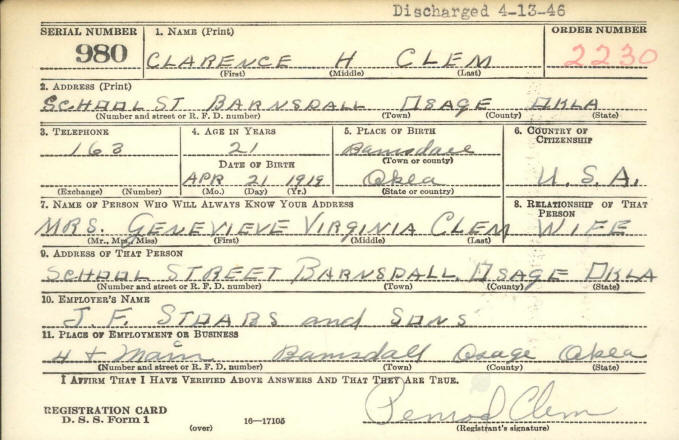 Discharged 4-13-46
SERIAL NUMBER 1. NAME (Print) ORDER NUMBER
980 CLARENCE H CLEM 2230
(First) (Middle) (Last)
2. ADDRESS (Print)
SCHOOL ST BARNSDALL OSAGE OKLA
(Number and street or R. F. D. number) (Town) (County) (State)
3. TELEPHONE 4. AGE IN YEARS 5. PLACE OF BIRTH 6. COUNTRY OF CITIZENSHIP
163 21 Barnsdall
DATE OF BIRTH (Town or county)
APR 21 1919 Okla U. S. A.
(Exchange) (Number) (Mo.) (Day) (Yr.) (State or country)
7. NAME OF PERSON WHO WILL ALWAYS KNOW YOUR ADDRESS 8. RELATIONSHIP OF THAT PERSON
MRS. GENEVIEVE VIRGINIA CLEM WIFE
(Mr., Mrs., Miss) (First) (Middle) (Last)
9. ADDRESS OF THAT PERSON
SCHOOL STREET BARNSDALL, OSAGE OKLA
(Number and street or R. F. D. number) (Town) (County) (State)
10. EMPLOYER'S NAME
J. F. STOABS and SONS
11. PLACE OF EMPLOYMENT OR BUSINESS
4 + Main Barnsdall Osage Okla
(Number and street or R. F. D. number) (Town) (County) (State)
I AFFIRM THAT I HAVE VERIFIED ABOVE ANSWERS AND THAT THEY ARE TRUE.
REGISTRATION CARD Clem
D. S. S. Form 1 (over) 16—17105 (Registrant's signature)